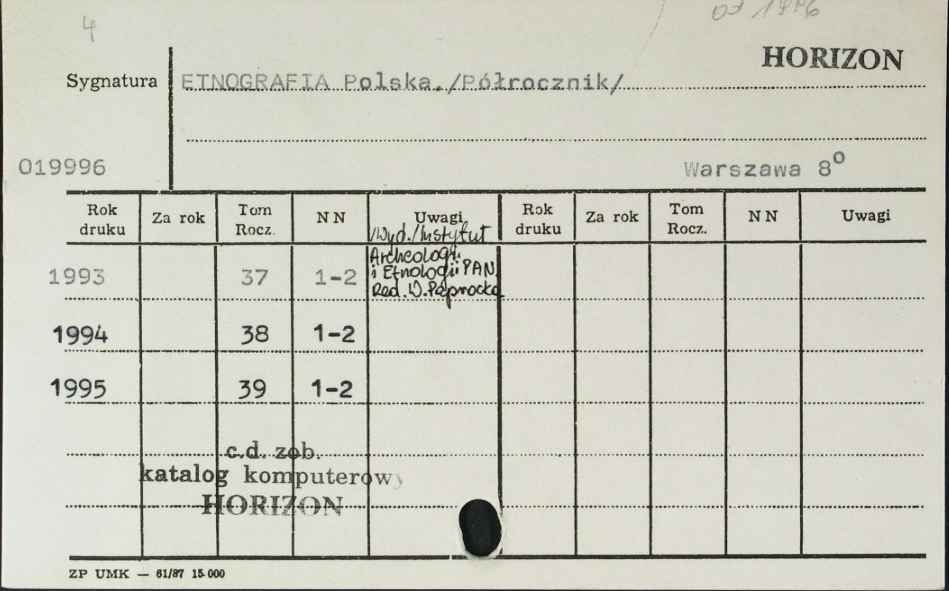 4
od 1996
HORIZON
Sygnatura ETNOGRAFIA Polska./Półrocznik/
019996 Warszawa 8°
Rok druku Za rok Tom Rocz. NN Uwagi Rok druku Za rok Tom Rocz. NN Uwagi
/Wyd./Instytut
Archeologii
i Etnologii PAN
Red. W. Paprocka
1993 37 1-2
1994 38 1-2
1995 39 1-2
c.d. zob.
katalog komputerowy
HORIZON
ZP UMK — 61/87 15.000